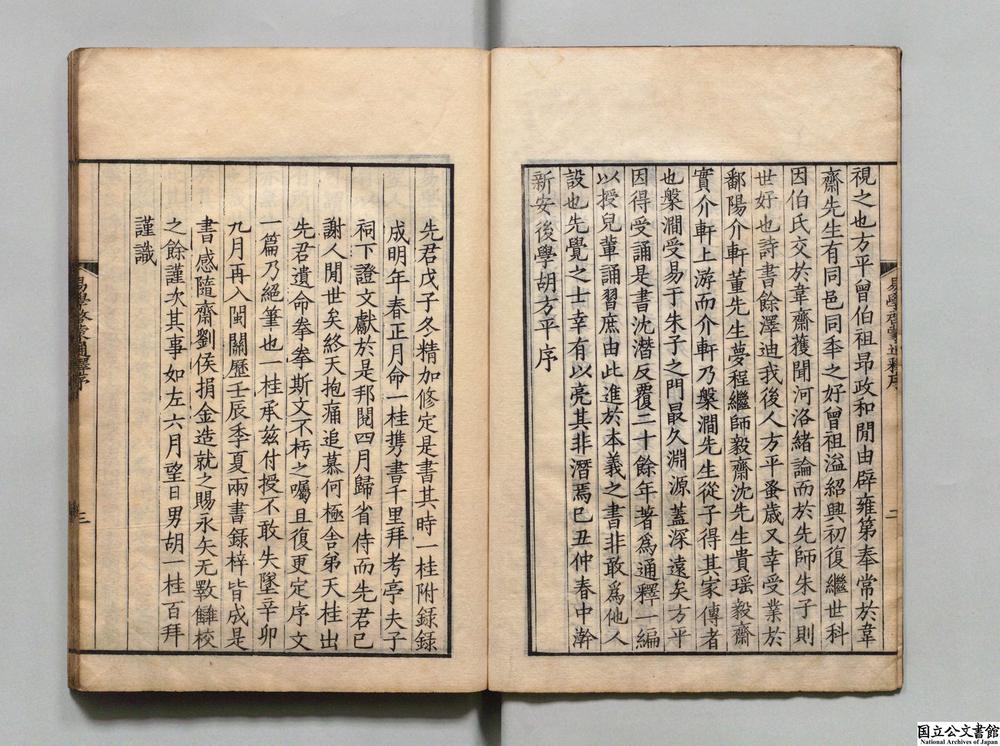 視之也方平曾伯祖昂政和閒由辟雍第奉常於韋
齋先生有同邑同年之好曾祖溢紹興初復繼世科
因伯氏交於韋齋獲聞河洛緒論而於先師朱子則
世好也詩書餘澤迪我後人方平蚤歲又幸受業於
鄱陽介軒董先生夢程繼師毅齋沈先生貴瑶毅齋
實介軒上游而介軒乃槃澗先生從子得其家傳者
也槃澗受易于朱子之門最久淵源蓋深遠矣方平
因得受誦是書沈潛反覆二十餘年著爲通釋一編
以授兒輩誦習庶由此進於本義之書非敢爲他人
設也先覺之士幸有以亮其非潛焉巳丑仲春中澣
新安後學胡方平序
易學啓蒙通釋序
二
先君戊子冬精加修定是書其時一桂附録録
成明年春正月命一桂携書千里拜考亭夫子
祠下證文獻於是邦閱四月歸省侍而先君已
謝人閒世矣終天抱痛追慕何極舍弟天桂出
先君遺命拳拳斯文不朽之囑且復更定序文
一篇乃絕筆也一桂承兹付授不敢失墜辛卯
九月再入閩關歷壬辰季夏兩書録梓皆成是
書感隨齋劉侯捐金造就之賜永矢无斁雠校
之餘謹次其事如左六月望日男胡一桂百拜
謹識
易學啓蒙通釋序
三
国立公文書館
National Archives of Japan